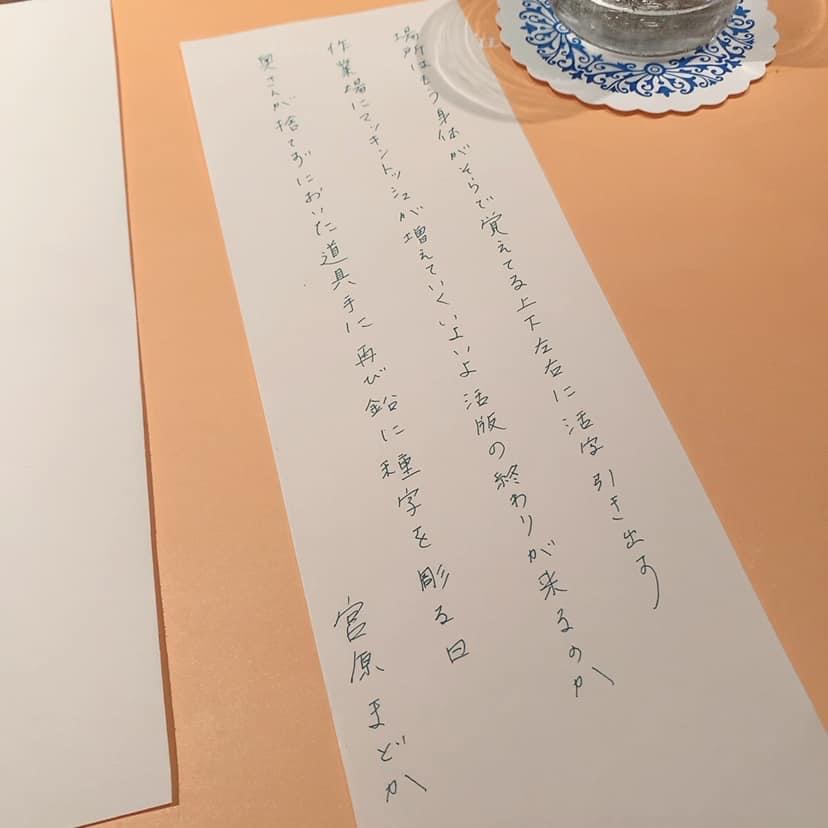 場所はもう身体がそらで覚えてる上下左右に活字引き出す
作業場にマッキントッシュが増えていくいよいよ活版の終わりが来るのか
奥さんが捨てずにおいた道具手に再び鉛に種字を彫る日
宮原まどか